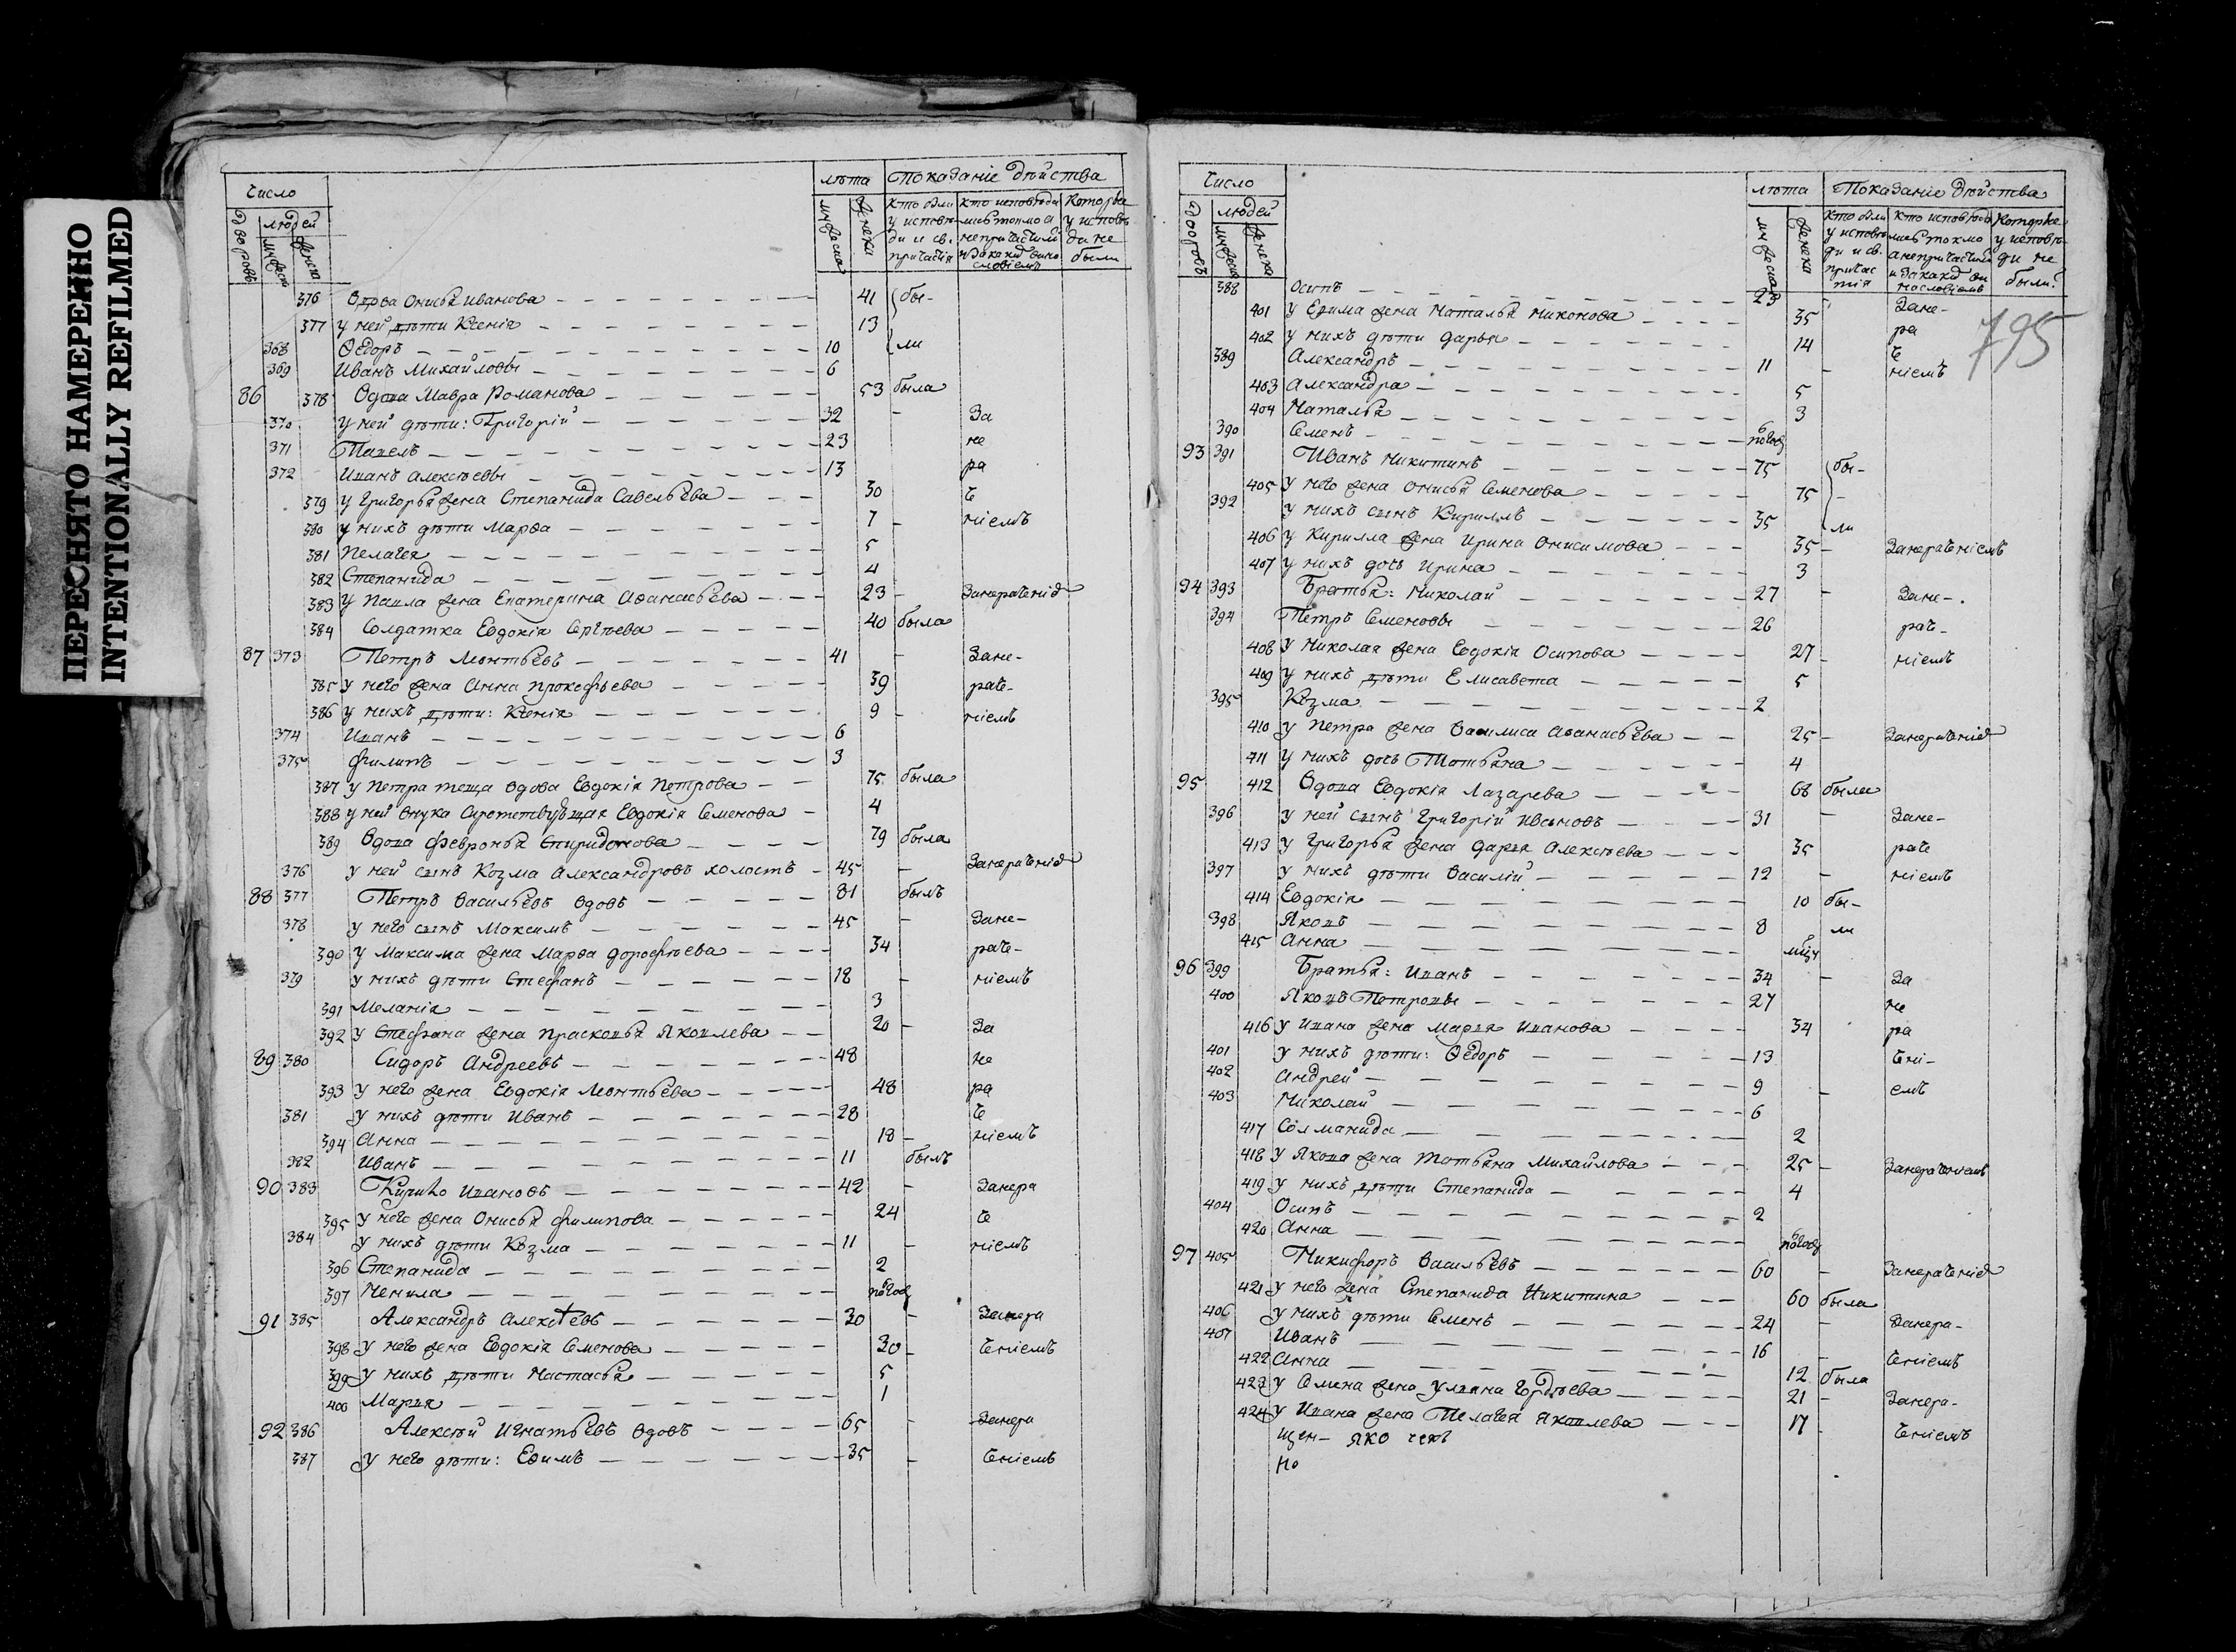 ПЕРЕСНЯТО НАМЕРЕННО
INTENTIONALLY REFILMED
Число лѣта Показаніе дѣйства
дворовъ людей мужеска женска мужеска женска кто были у исповѣди и св. причастія кто исповѣдались токмо а непричастились и за какимъ винословіемъ Которые у исповѣди не были
376 Вдова Онисья Иванова 41 бы-
377 у ней дѣти Ксенія 13
368 Ѳедоръ 10 ли
369 Иванъ Михайловы 6
86 378 Вдова Мавра Романова 53 была
370 у ней дѣти: Григорій 32 - За
371 Павелъ 23 не
372 Иванъ Алексѣевы 13 ра
379 у Григорья жена Степанида Савельева 30 ч
380 у нихъ дѣти Марѳа 7 - ніемъ
381 Пелагея 5
382 Степанида 4
383 у Павла жена Екатерина Аѳанасьева 23 - Занераченіе
384 Солдатка Евдокія Сергѣева 40 была
87 373 Петръ Леонтьевъ 41 - Зане-
385 у него жена Анна Прокофьева 39 раче-
386 у нихъ дѣти: Ксенія 9 - ніемъ
374 Иванъ 6
375 Филипъ 3
387 у Петра теща вдова Евдокія Петрова 75 была
388 у ней внука сиротствующая Евдокія Семенова 4
389 Вдова Февронья Спиридонова 79 была
376 у ней сынъ Козма Александровъ холостъ 45 - Занераченіе
88 377 Петръ Васильевъ вдовъ 81 былъ
378 у него сынъ Максимъ 45 - Зане-
390 у Максима жена Марѳа Дорофѣева 34 раче-
379 у нихъ дѣти Стефанъ 18 - ніемъ
391 Меланія 3
392 у Стефана жена Прасковья Яковлева 20 - За
89 380 Сидоръ Андреевъ 48 не
393 у него жена Евдокія Леонтьева 48 ра
381 у нихъ дѣти Иванъ 28 ч
394 Анна 18 - ніемъ
382 Иванъ 11 былъ
90 383 Ивановъ 42 - Занера
395 у него жена Онисья Филипова 24 че
384 у нихъ дѣти Козма 11 - ніемъ
396 Степанида 2
397 Ненила полгод
91 385 Александръ Алексѣевъ 30 - Занера
398 у него жена Евдокія Семенова 30 - ченіемъ
399 у нихъ дѣти Настасья 5
400 Марья 1
92 386 Алексѣй Игнатьевъ вдовъ 65 - Занера
387 у него дѣти: Ефимъ 35 - ченіемъ
Число лѣта Показаніе дѣйства
дворовъ людей мужеска женска мужеска женска кто были у исповѣди и св. причастія кто исповѣдались токмо а непричастились и за какимъ винословіемъ Которые у исповѣди не были
795
388 Осипъ 23 - Зане-
401 у Ефима жена Наталья Никонова 35 ра
402 у нихъ дѣти Дарья 14 ч
389 Александръ 11 - ніемъ
403 Александра 5
404 Наталья 3
390 Семенъ полгод
93 391 Иванъ Никитинъ 75 бы-
405 у него жена Онисья Семенова 75 -
392 у нихъ сынъ Кириллъ 35 ли
406 у Кирилла жена Ирина Онисимова 35 - Занераченіемъ
407 у нихъ дочь Ирина 3
94 393 Братья: Николай 27 - Зане-
394 Петръ Семеновы 26 рач-
408 у Николая жена Евдокія Осипова 27 - ніемъ
409 у нихъ дѣти Елисавета 5
395 Козма 2
410 у Петра жена Василиса Аѳанасьева 25 - Занераченіе
411 у нихъ дочь Татьяна 4
95 412 Вдова Евдокія Лазарева 68 была
396 у ней сынъ Григорій Ивановъ 31 - Зане-
413 у Григорья жена Дарья Алексѣева 35 раче
397 у нихъ дѣти Василій 12 - ніемъ
414 Евдокія 10 бы-
398 Яковъ 8 ли
415 Анна
96 399 Братья: Иванъ 34 - За
400 Яковъ Петровы 27 не
416 у Ивана жена Марья Иванова 34 ра
401 у нихъ дѣти: Ѳедоръ 13 чені-
402 Андрей 9 - емъ
403 Николай 6
417 Соломанида 2
418 у Якова жена Татьяна Михайлова 25 - Занераченіемъ
419 у нихъ дѣти Степанида 4
404 Осипъ 2
420 Анна полгод
97 405 Никифоръ Васильевъ 60 - Занераченіе
421 у него жена Степанида Никитина 60 была
406 у нихъ дѣти Семенъ 24 - Занера-
407 Иванъ 16 - ченіемъ
422 Анна 12 была
423 у Семена жена Ульяна Гордѣева 21 - Занера-
424 у Ивана жена Пелагея Яковлева 17 - ченіемъ
щен- яко
но